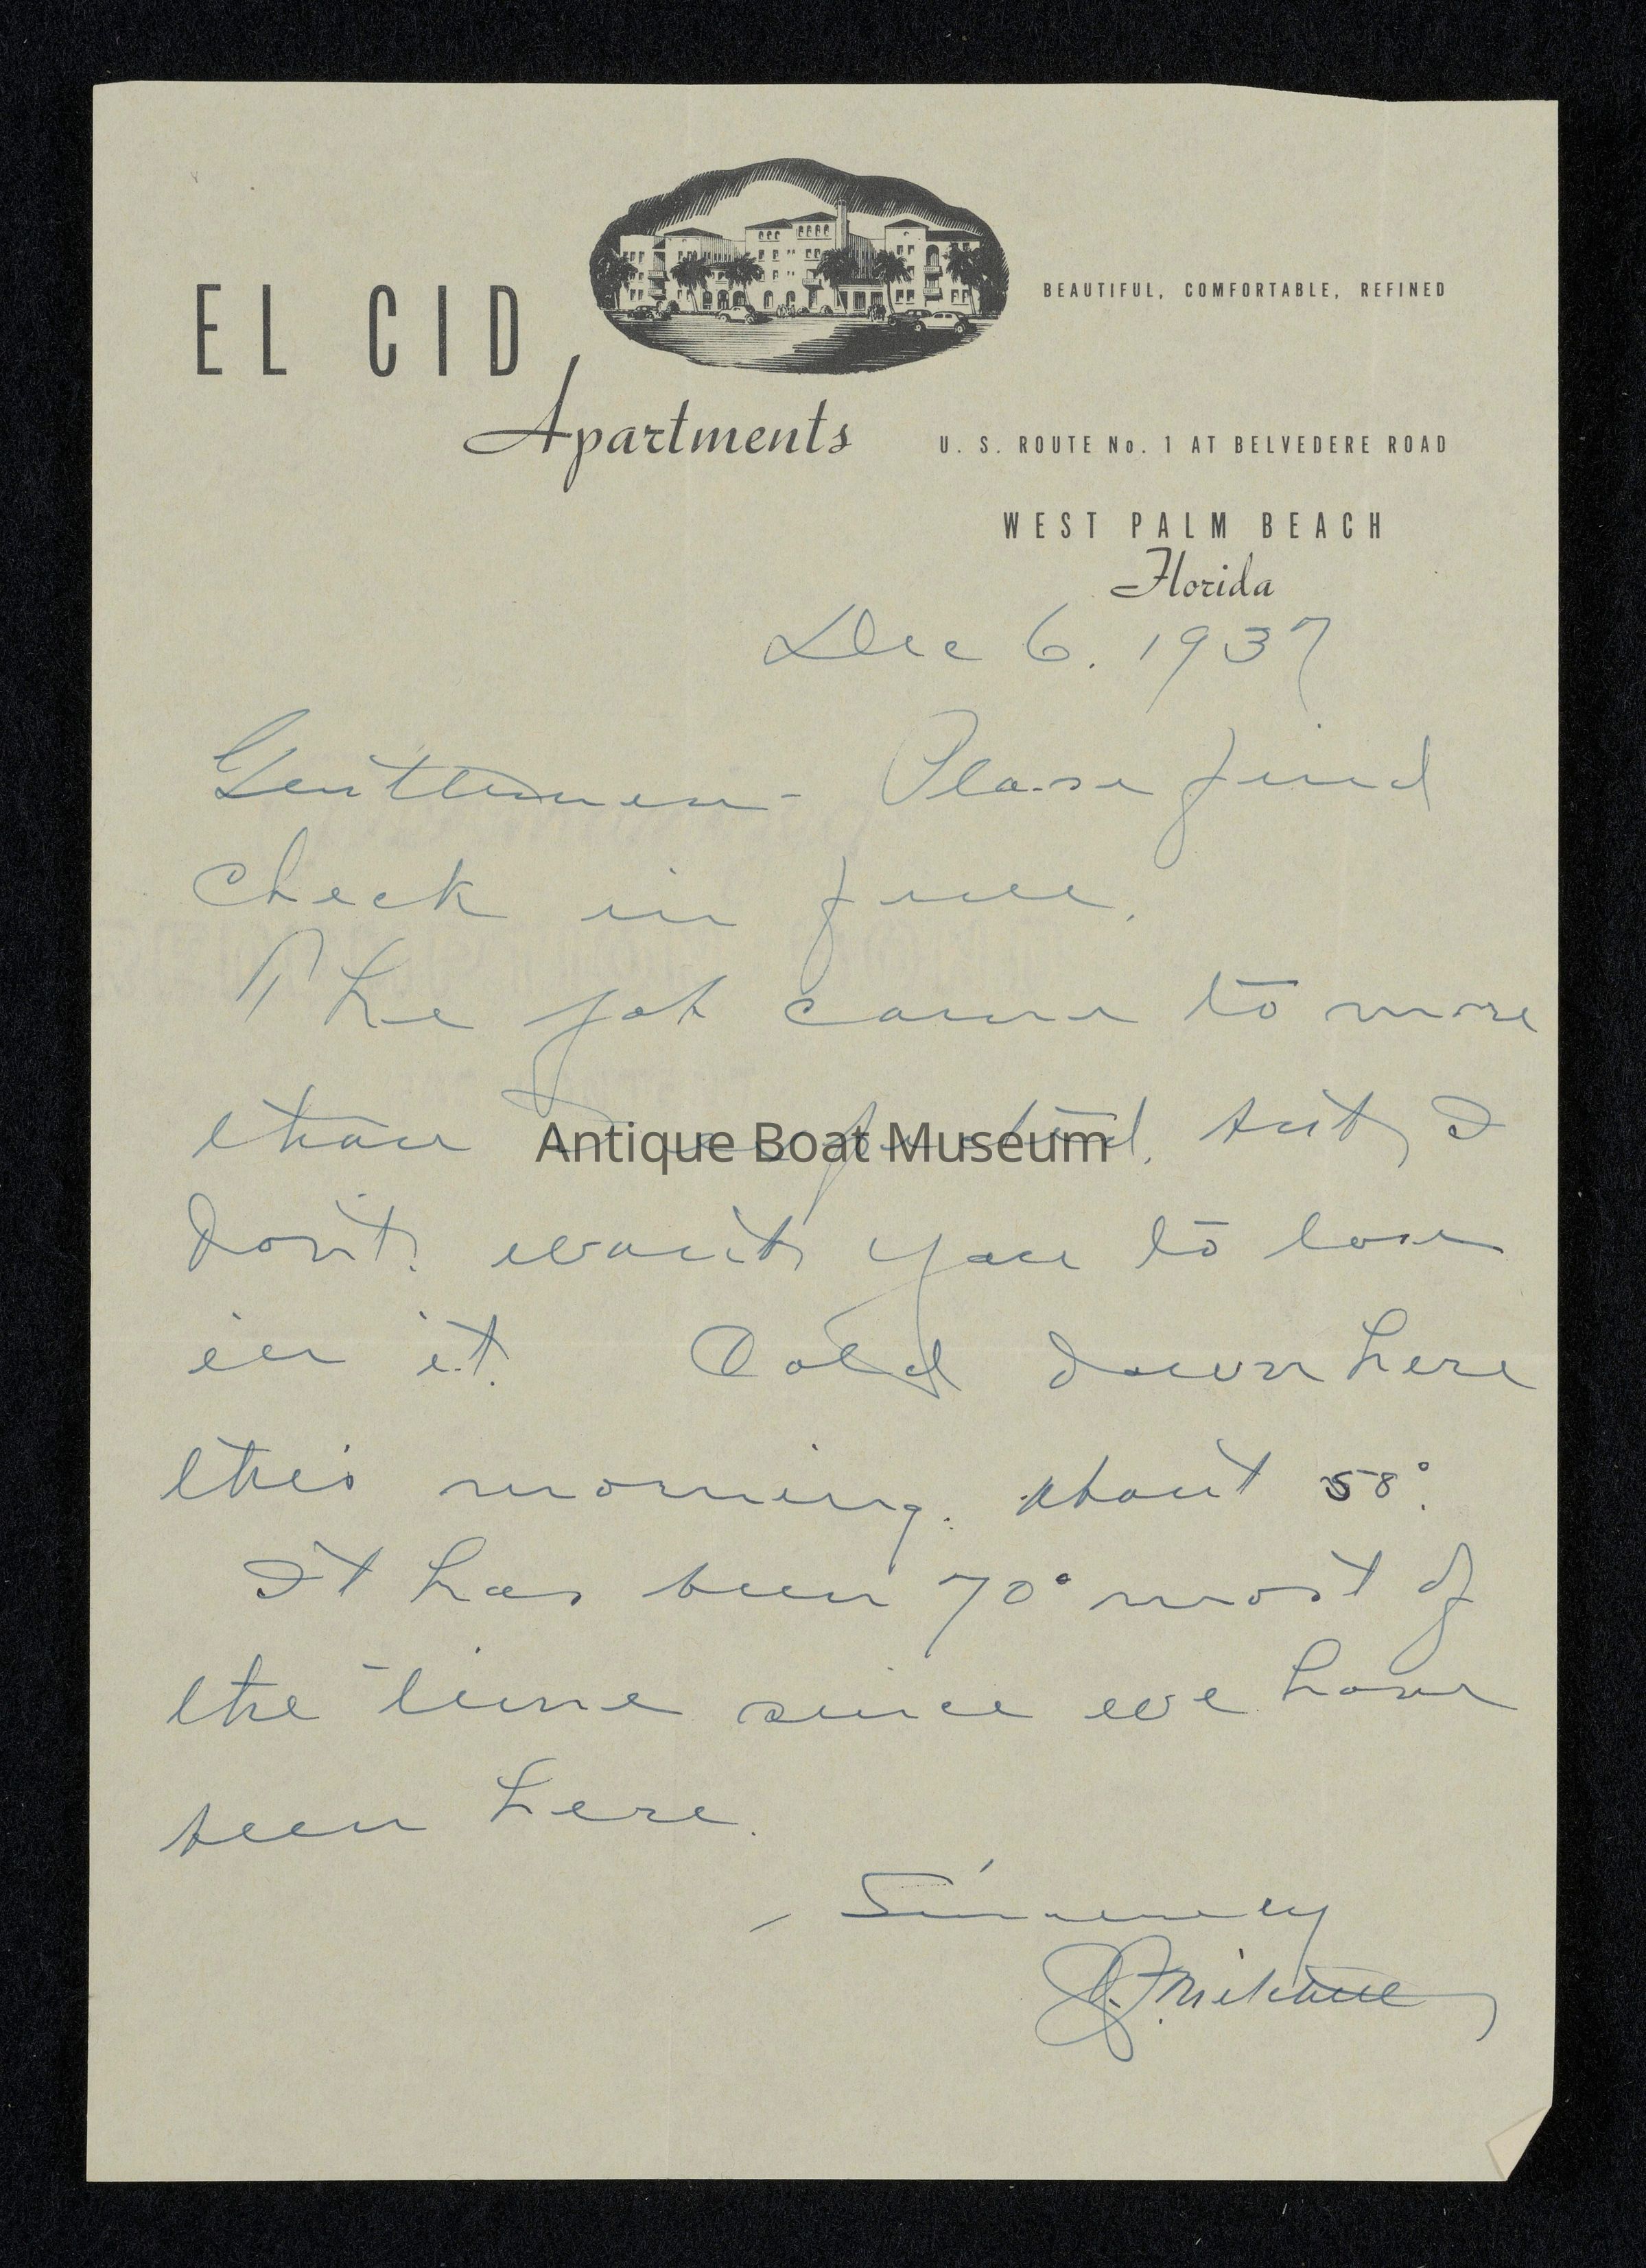 EL CID
Apartments
BEAUTIFUL, COMFORTABLE, REFINED
U. S. ROUTE No. 1 AT BELVEDERE ROAD
WEST PALM BEACH
Florida
Dec 6. 1937
Gentlemen - Please find
check in full.
The job came to more
than I expected, but I
don't want you to lose
in it. Cold down here
this morning. about 58°.
It has been 70° most of
the time since we have
been here.
Sincerely
Mitchell
Antique Boat Museum